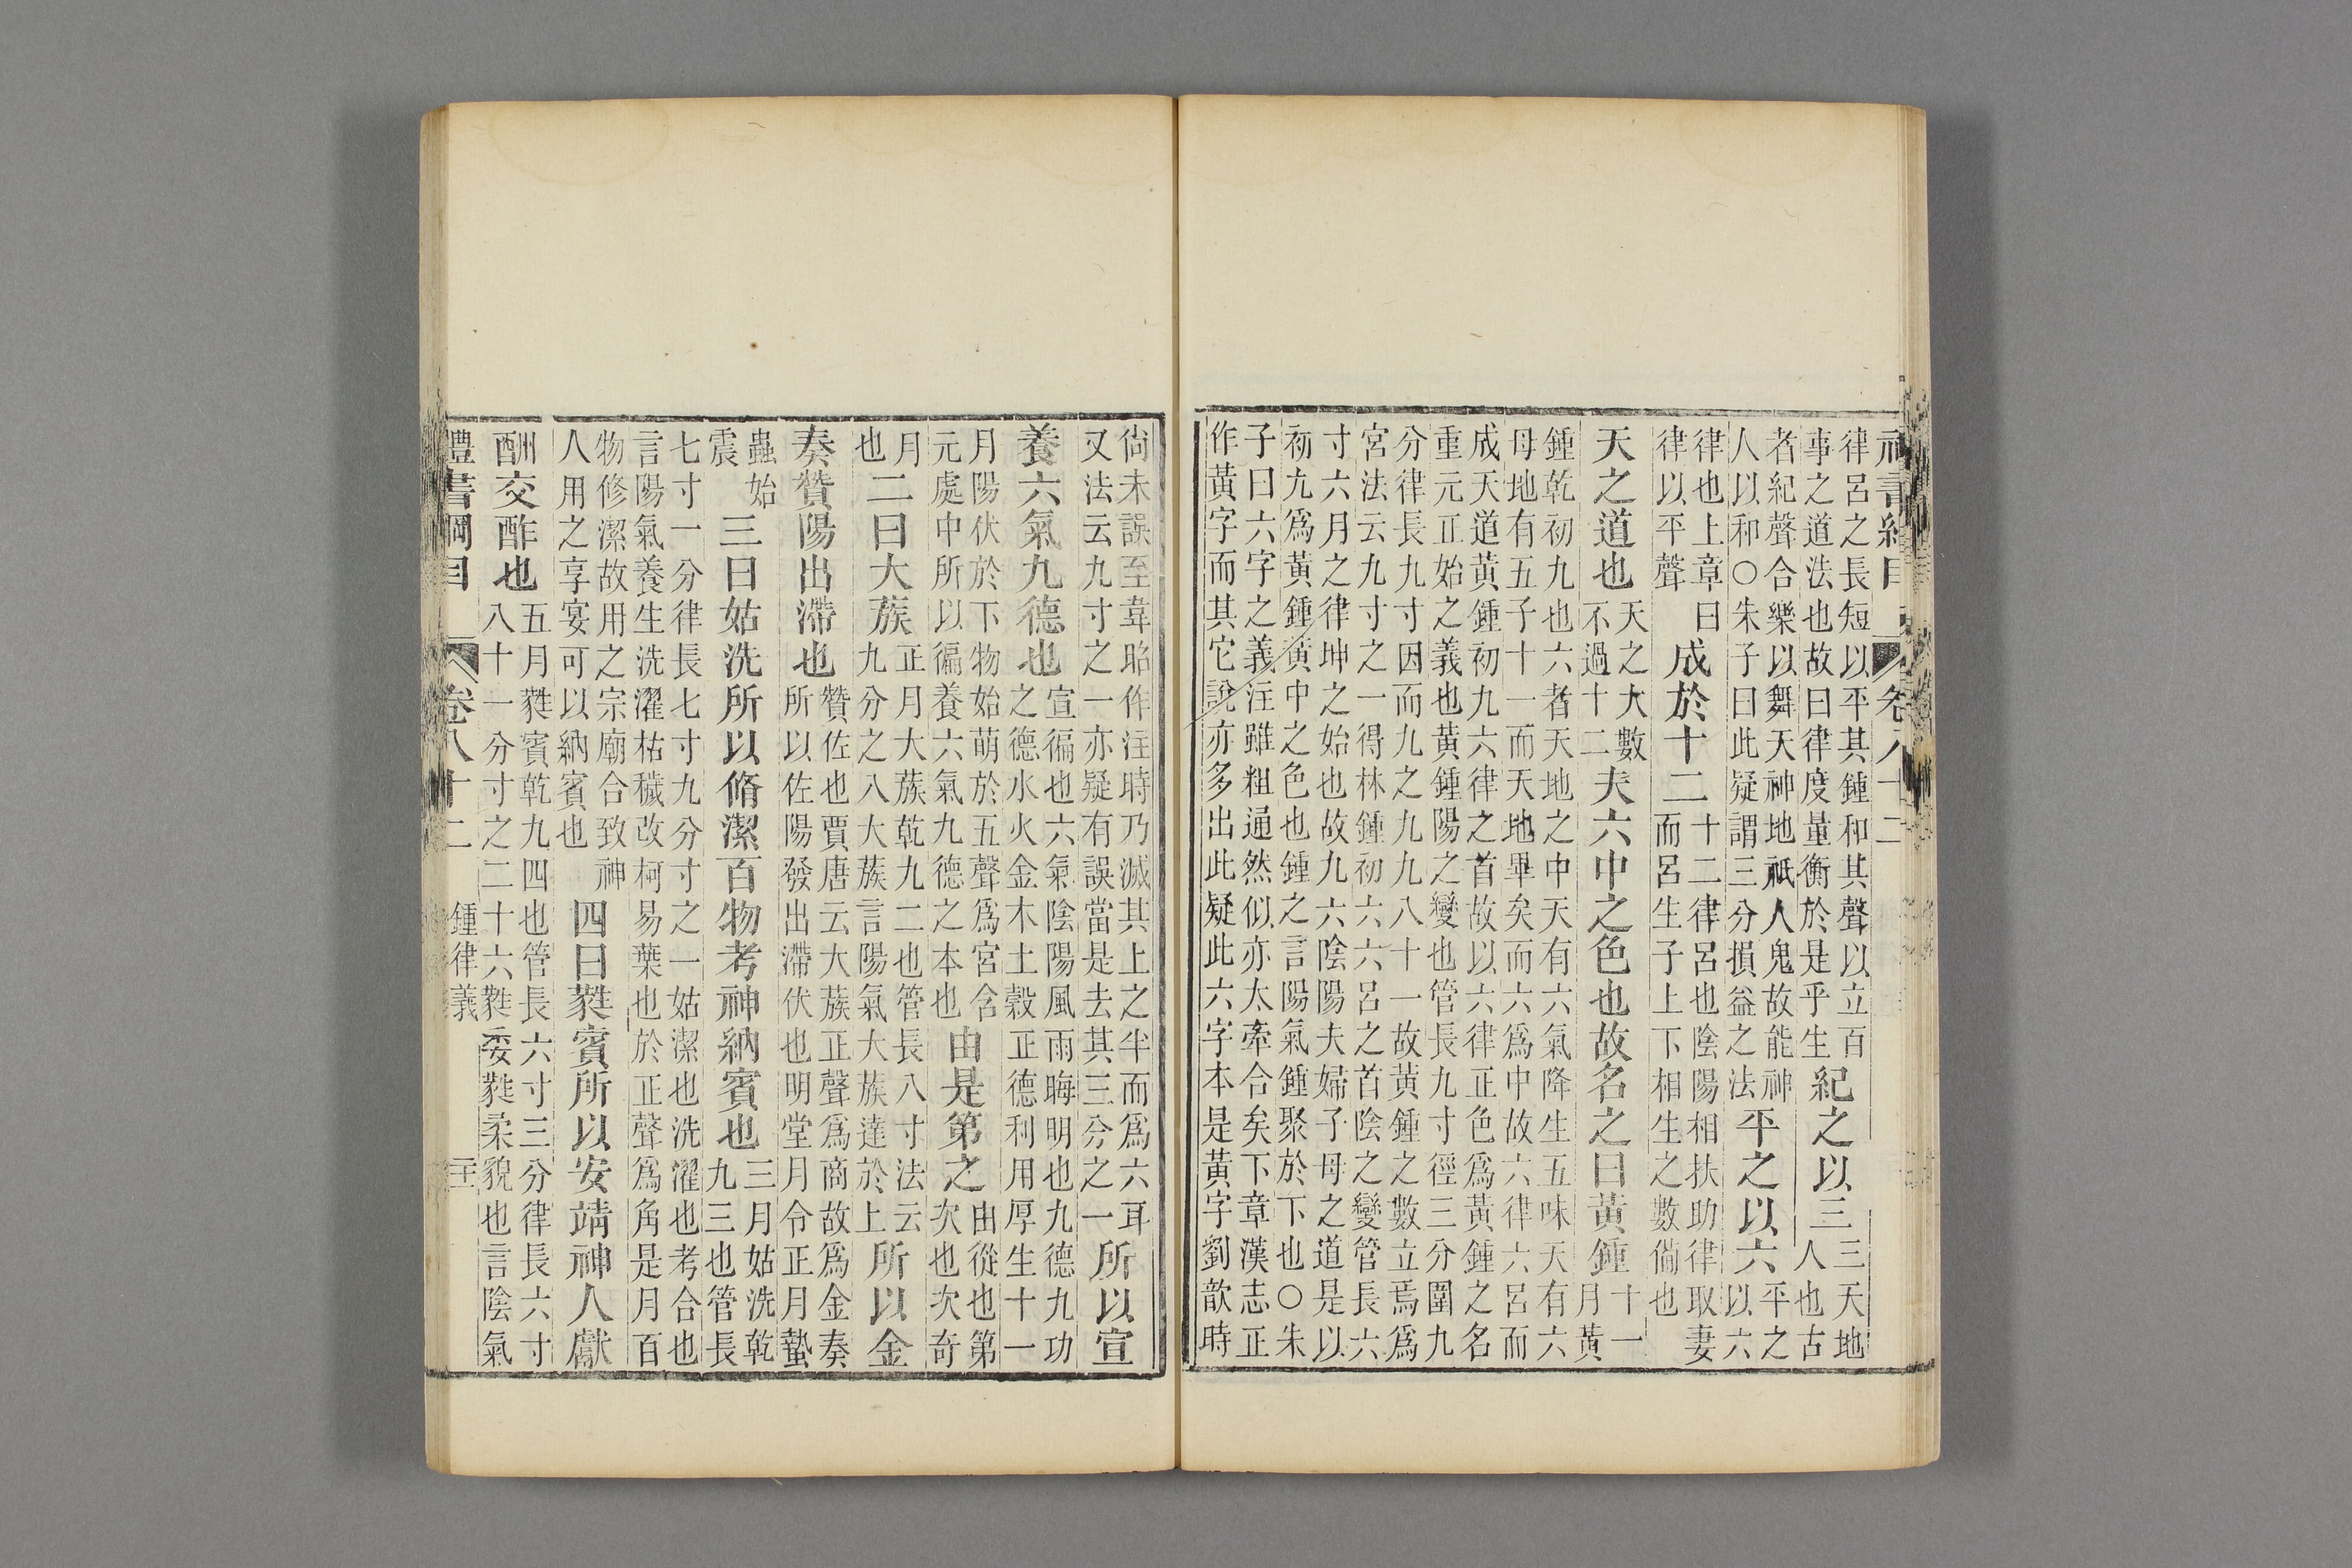 禮書綱目 卷八十二
律呂之長短以平其鍾和其聲以立百
事之道法也故曰律度量衡於是乎生
紀之以三
三天地
人也古
者紀聲合樂以舞天神地祇人鬼故能神
人以和○朱子曰此疑謂三分損益之法
平之以六
平之
以六
律也上章曰
律以平聲
成於十二
十二律呂也陰陽相扶助律取妻
而呂生子上下相生之數備也
天之道也
天之大數
不過十二
夫六中之色也故名之曰黃鍾
十一
月黃
鍾乾初九也六者天地之中天有六氣降生五味天有六
母地有五子十一而天地畢矣而六爲中故六律六呂而
成天道黃鍾初九六律之首故以六律正色爲黃鍾之名
重元正始之義也黃鍾陽之變也管長九寸徑三分圍九
分律長九寸因而九之九九八十一故黃鍾之數立焉爲
宮法云九寸之一得林鍾初六六呂之首陰之變管長六
寸六月之律坤之始也故九六陰陽夫婦子母之道是以
初九爲黃鍾黃中之色也鍾之言陽氣鍾聚於下也○朱
子曰六字之義注雖粗通然似亦太牽合矣下章漢志正
作黃字而其它說亦多出此疑此六字本是黃字劉歆時
尙未誤至韋昭作注時乃滅其上之半而爲六耳
又法云九寸之一亦疑有誤當是去其三分之一
所以宣
養六氣九德也
宣徧也六氣陰陽風雨晦明也九德九功
之德水火金木土穀正德利用厚生十一
月陽伏於下物始萌於五聲爲宮含
元處中所以徧養六氣九德之本也
由是第之
由從也第
次也次奇
月
也
二曰大蔟
正月大蔟乾九二也管長八寸法云
九分之八大蔟言陽氣大蔟達於上
所以金
奏贊陽出滯也
贊佐也賈唐云大蔟正聲爲商故爲金奏
所以佐陽發出滯伏也明堂月令正月蟄
蟲始
震
三曰姑洗所以脩潔百物考神納賓也
三月姑洗乾
九三也管長
七寸一分律長七寸九分寸之一姑潔也洗濯也考合也
言陽氣養生洗濯枯穢改柯易葉也於正聲爲角是月百
物修潔故用之宗廟合致神
人用之享宴可以納賓也
四曰蕤賓所以安靖神人獻
酬交酢也
五月蕤賓乾九四也管長六寸三分律長六寸
八十一分寸之二十六蕤委蕤柔貌也言陰氣
禮書綱目 卷八十二 鍾律義